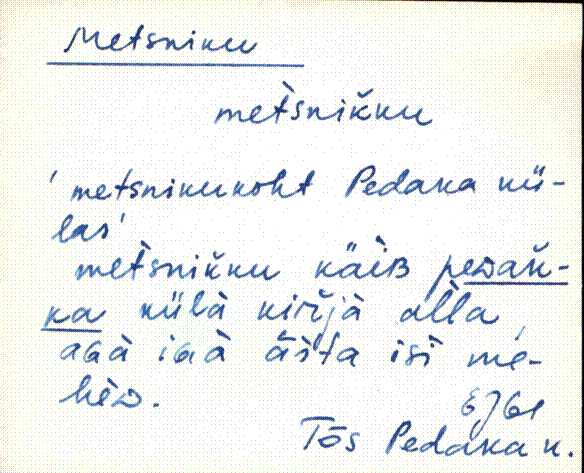 Metsniku
metsnikku
'metsnikukoht Pedaka kü-
las'
metsnikku käib pedak-
ka külä kirjä alla,
agà igà ästa isi me-
hed.
EJ61
Tõs Pedaka k.